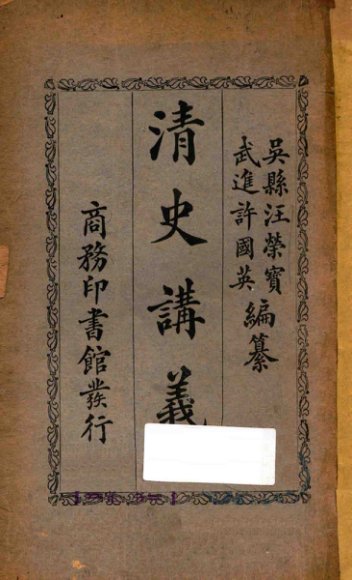 吳縣汪榮寶
武進許國英
編纂
清史講義
商務印書館發行